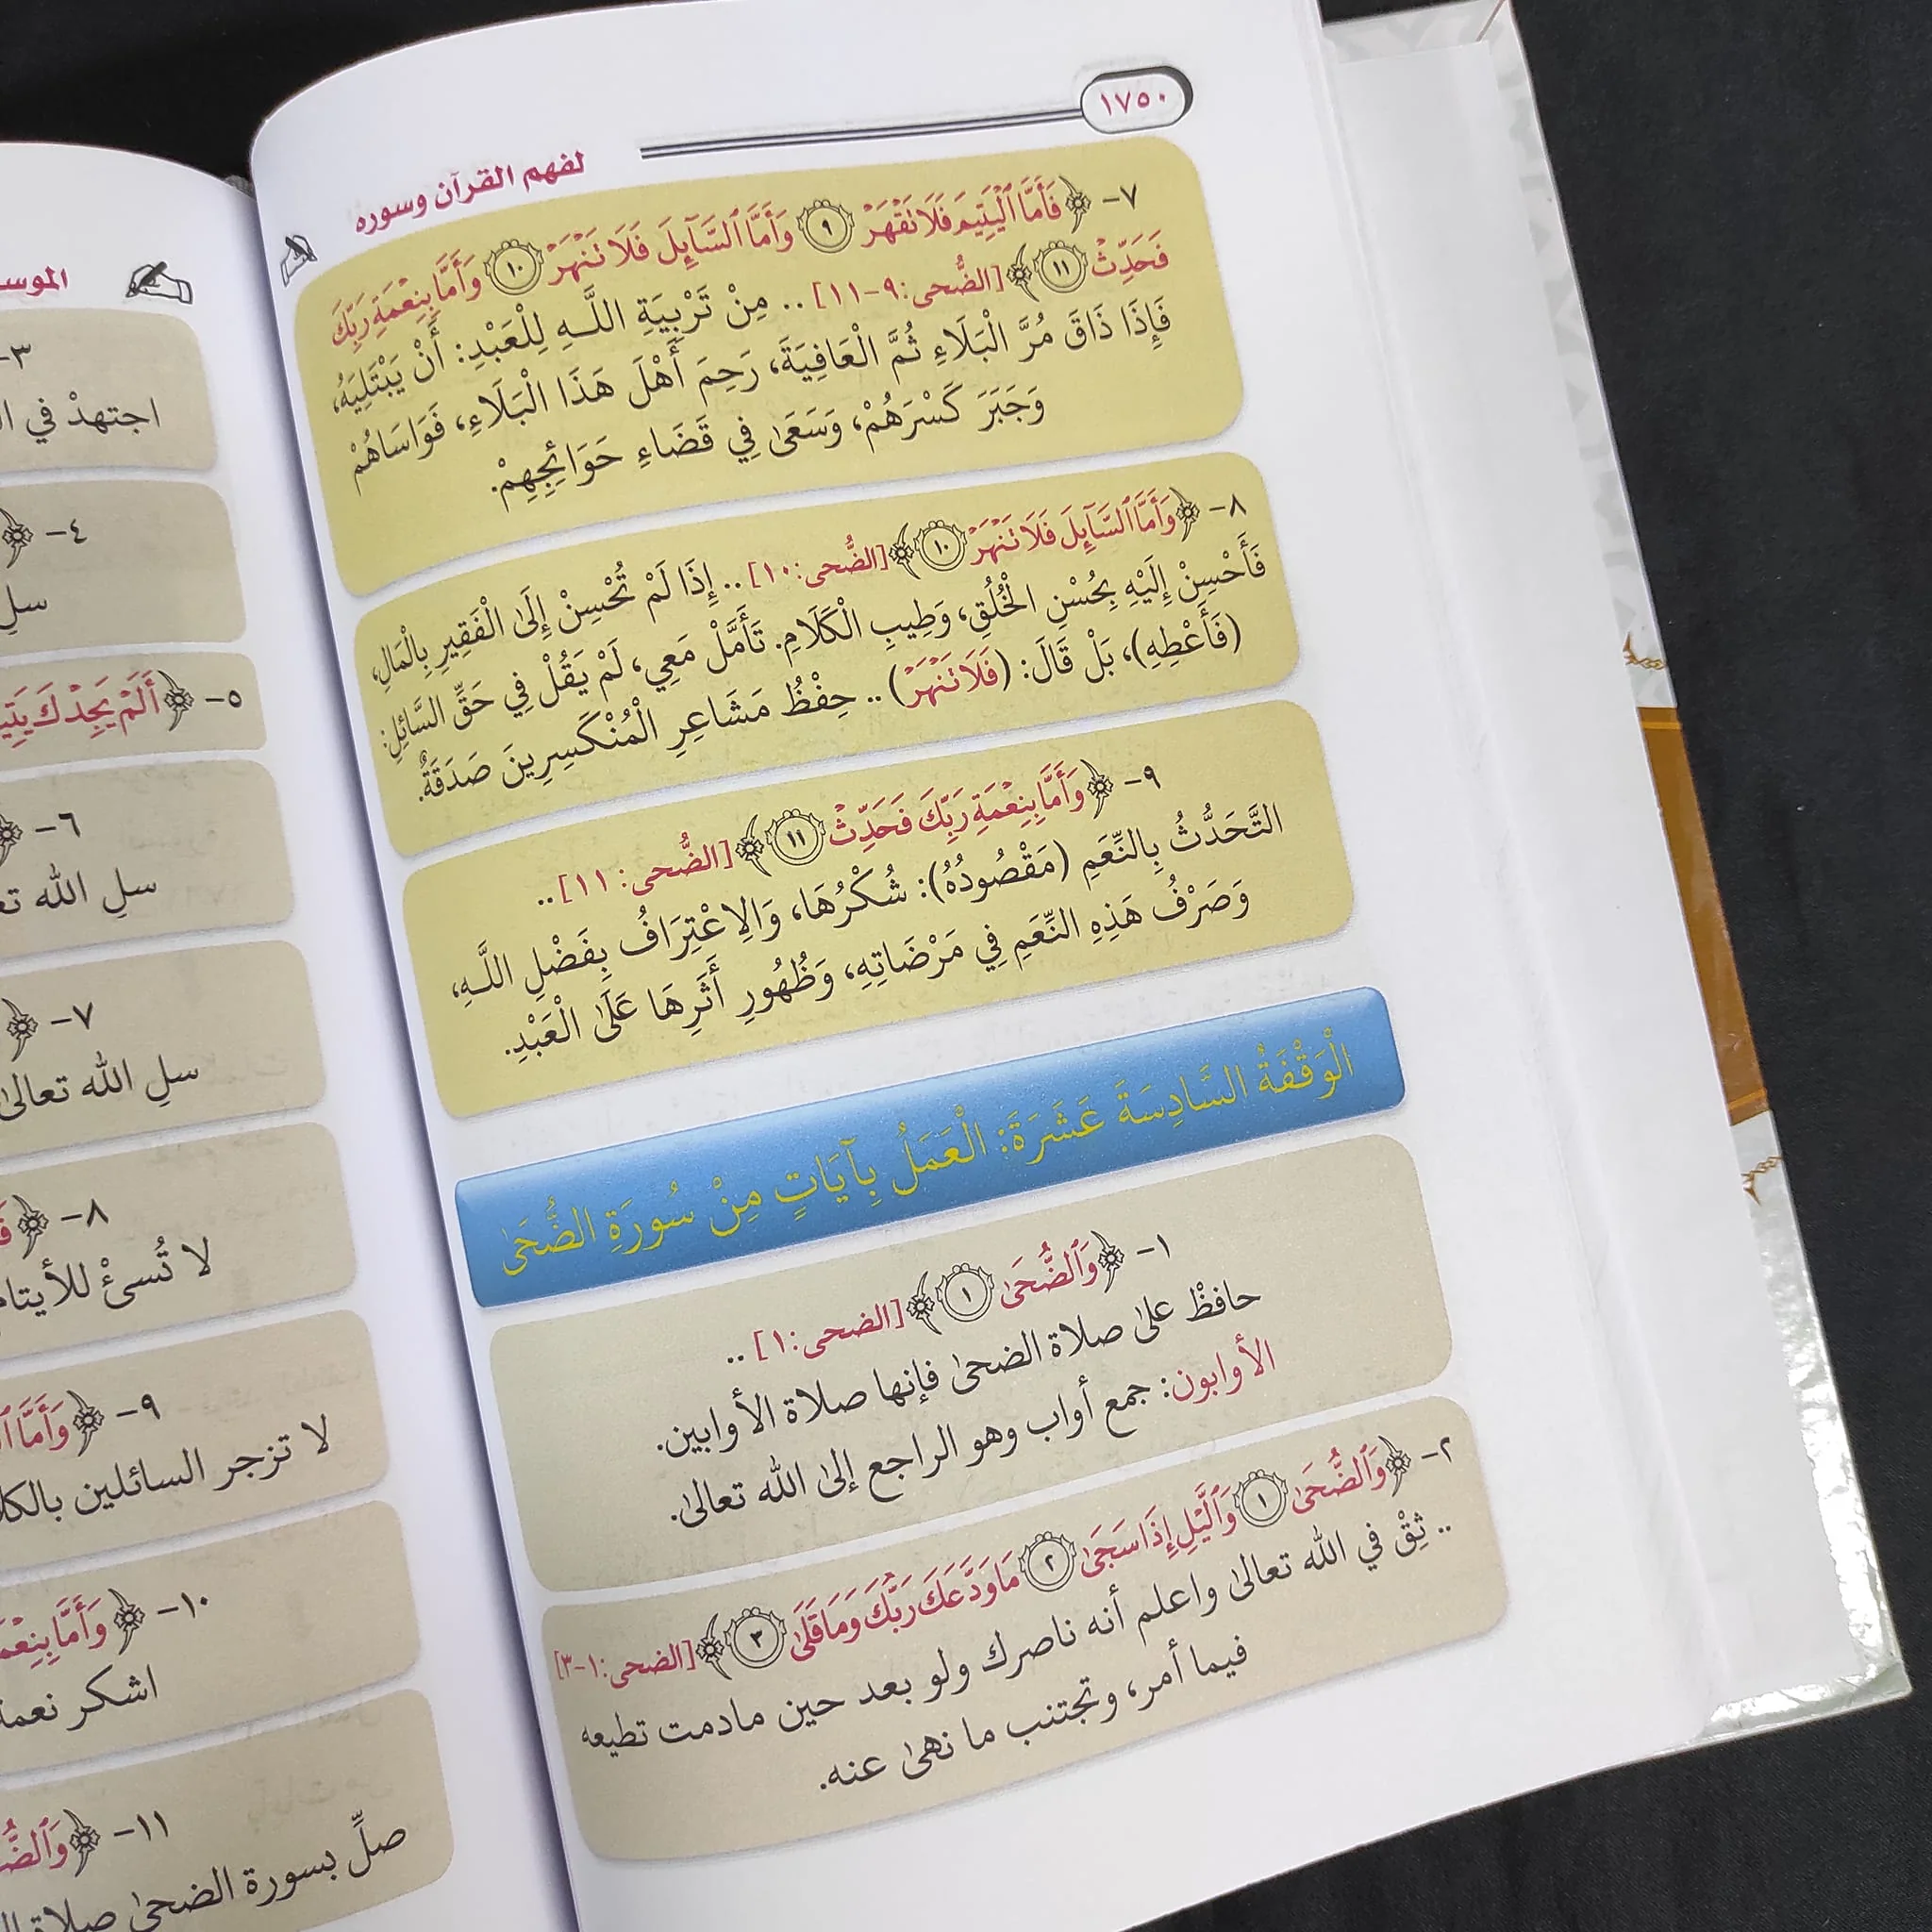 ١٧٥٠
لفهم القرآن وسوره
٧- ﴿فَأَمَّا ٱلْيَتِيمَ فَلَا تَقْهَرْ ٩ وَأَمَّا ٱلسَّآئِلَ فَلَا تَنْهَرْ ١٠ وَأَمَّا بِنِعْمَةِ رَبِّكَ
فَحَدِّثْ ١١﴾ [الضُّحى: ٩-١١] .. مِنْ تَرْبِيَةِ اللَّهِ لِلْعَبْدِ: أَنْ يَبْتَلِيَهُ،
فَإِذَا ذَاقَ مُرَّ الْبَلَاءِ ثُمَّ الْعَافِيَةَ، رَحِمَ أَهْلَ هَذَا الْبَلَاءِ، فَوَاسَاهُمْ
وَجَبَرَ كَسْرَهُمْ، وَسَعَىٰ فِي قَضَاءِ حَوَائِجِهِمْ.
٨- ﴿وَأَمَّا ٱلسَّآئِلَ فَلَا تَنْهَرْ ١٠﴾ [الضُّحى: ١٠] .. إِذَا لَمْ تُحْسِنْ إِلَىٰ الْفَقِيرِ بِالْمَالِ،
فَأَحْسِنْ إِلَيْهِ بِحُسْنِ الْخُلُقِ، وَطِيبِ الْكَلَامِ. تَأَمَّلْ مَعِي، لَمْ يَقُلْ فِي حَقِّ السَّائِلِ:
(فَأَعْطِهِ)، بَلْ قَالَ: (فَلَا تَنْهَرْ) .. حِفْظُ مَشَاعِرِ الْمُنْكَسِرِينَ صَدَقَةٌ.
٩- ﴿وَأَمَّا بِنِعْمَةِ رَبِّكَ فَحَدِّثْ ١١﴾ [الضُّحى: ١١] ..
التَّحَدُّثُ بِالنِّعَمِ (مَقْصُودُهُ): شُكْرُهَا، وَالِاعْتِرَافُ بِفَضْلِ اللَّهِ،
وَصَرْفُ هَذِهِ النِّعَمِ فِي مَرْضَاتِهِ، وَظُهُورِ أَثَرِهَا عَلَىٰ الْعَبْدِ.
الْوَقْفَةُ السَّادِسَةَ عَشَرَةَ: الْعَمَلُ بِآيَاتٍ مِنْ سُورَةِ الضُّحَىٰ
١- ﴿وَٱلضُّحَىٰ ١﴾ [الضحى: ١] ..
حافظْ علىٰ صلاة الضحىٰ فإنها صلاة الأوابين.
الأوابون: جمع أواب وهو الراجع إلىٰ الله تعالىٰ.
٢- ﴿وَٱلضُّحَىٰ ١ وَٱلَّيْلِ إِذَا سَجَىٰ ٢ مَا وَدَّعَكَ رَبُّكَ وَمَا قَلَىٰ ٣﴾ [الضحى: ١-٣]
.. ثِقْ في الله تعالىٰ واعلم أنه ناصرك ولو بعد حين مادمت تطيعه
فيما أمر، وتجتنب ما نهىٰ عنه.
٣-
اجتهدْ في
٤- ﴿
سلِ
٥- ﴿أَلَمْ يَجِدْكَ
٦- ﴿
سلِ الله
٧- ﴿
سلِ الله تعالىٰ
٨- ﴿
لا تُسئْ
٩- ﴿وَأَمَّا
لا تزجر السائلين
١٠- ﴿وَأَمَّا
اشكر
١١- ﴿
صلِّ بسورة الضحىٰ صلاة